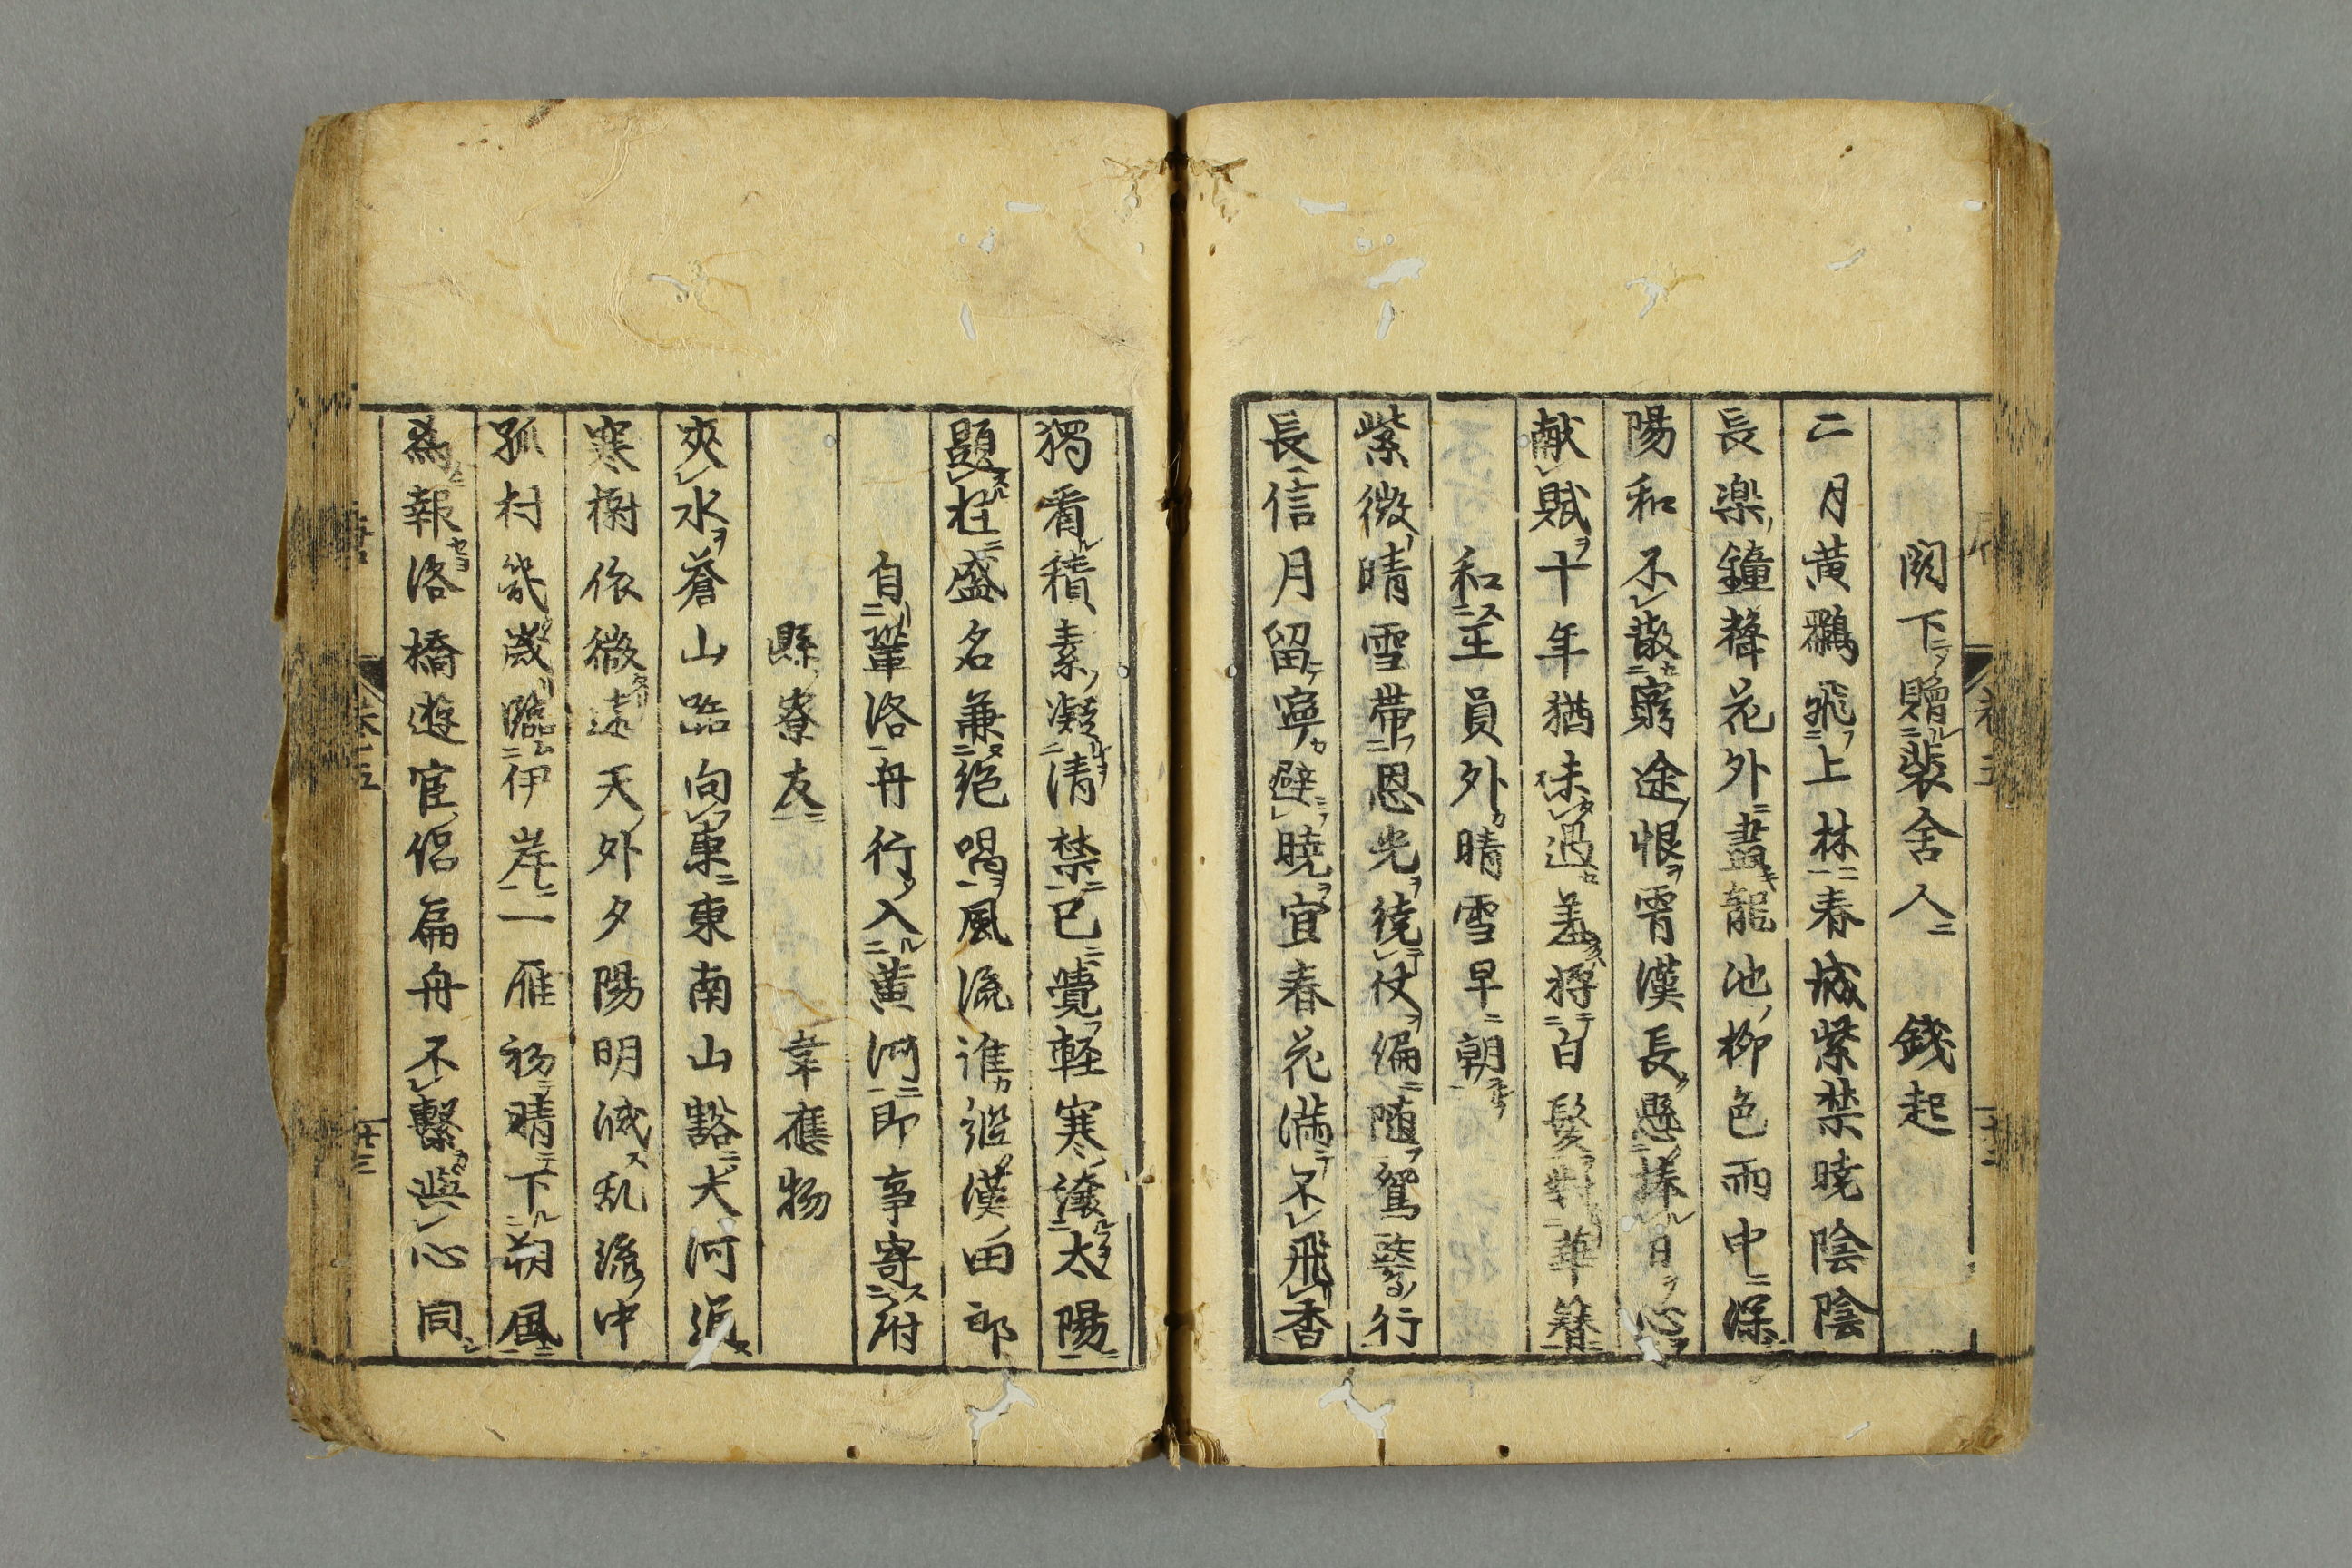 闕下贈裴舍人　錢起
二月黄鸝飛上林春城紫禁曉陰陰
長楽鐘聲花外盡龍池柳色雨中深
陽和不散窮途恨霄漢長懸捧日心
献賦十年猶未過羞將白髮對華簪
和王員外晴雪早朝
紫微晴雪帯恩光繞仗偏随鴛鷺行
長信月留寧避曉宜春花満不飛香
獨看積素凝清禁已覺軽寒讓太陽
題柱盛名兼絶唱風流誰繼漢田郎
自鞏洛舟行入黄河即事寄府
縣寮友　韋應物
夾水蒼山路向東東南山豁大河通
寒樹依微遠天外夕陽明滅乱流中
孤村幾歳臨伊岸一雁初晴下朔風
為報洛橋遊宦侶扁舟不繫與心同